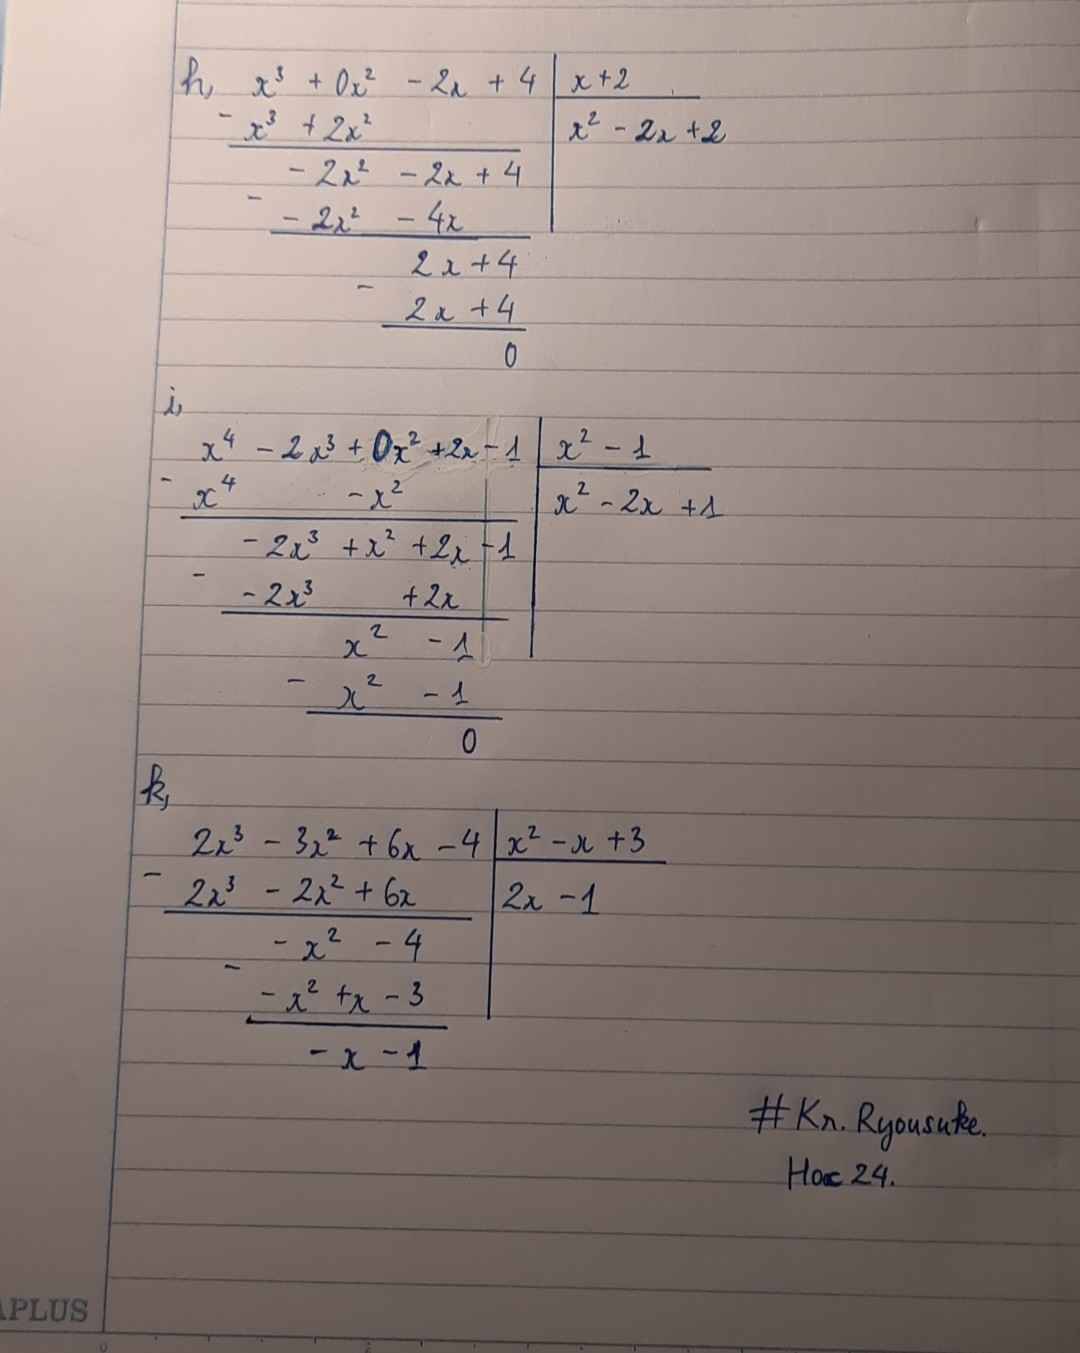 h, x³ + 0x² - 2x + 4 | x + 2
- x³ + 2x² | x² - 2x + 2
- 2x² - 2x + 4
- - 2x² - 4x
2x + 4
- 2x + 4
0
i,
x⁴ - 2x³ + 0x² + 2x - 1 | x² - 1
- x⁴ - x² | x² - 2x + 1
- 2x³ + x² + 2x - 1
- - 2x³ + 2x
x² - 1
- x² - 1
0
k,
2x³ - 3x² + 6x - 4 | x² - x + 3
- 2x³ - 2x² + 6x | 2x - 1
- x² - 4
- - x² + x - 3
- x - 1
#Kn. Ryousuke.
Hoc 24.
APLUS
0